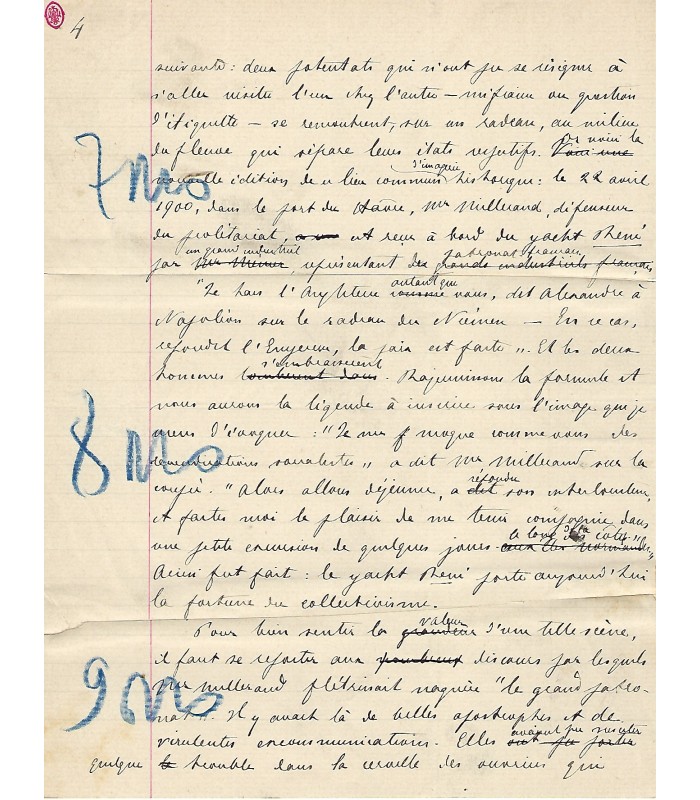 4
suivante : deux potentats qui n'ont pu se résigner à
s'aller visiter l'un chez l'autre — méfiance ou question
d'étiquette — se rencontrent, sur un radeau, au milieu
du fleuve qui sépare leurs états respectifs. Or voici la
7 Mo
nouvelle édition de ce lieu commun d'imagerie historique : le 22 avril
1900, dans le port du Havre, Mr Millerand, défenseur
du prolétariat, est reçu à bord du yacht René
par un grand industriel, représentant du patronat français
"Je hais l'Angleterre autant que vous, dit Alexandre à
Napoléon sur le radeau du Niémen — En ce cas,
répondit l'Empereur, la paix est faite". Et les deux
hommes s'embrassèrent. Rajeunissons la formule et
nous aurons la légende à inscrire sous l'image que je
8 Mo
viens d'évoquer : "Je me moque comme vous des
revendications socialistes" a dit Mr Millerand sur la
coupée. "Alors allons déjeuner, a répondu son interlocuteur,
et faites moi le plaisir de me tenir compagnie dans
une petite excursion de quelques jours le long de la côte".
Ainsi fut fait : le yacht René porte aujourd'hui
la fortune du collectivisme.
Pour bien sentir la valeur d'une telle scène,
il faut se reporter aux discours par lesquels
9 Mo
Mr Millerand flétrissait naguère "le grand patro-
nat". Il y avait là de belles apostrophes et de
virulentes excommunications. Elles avaient pu susciter
quelque trouble dans la cervelle des ouvriers qui